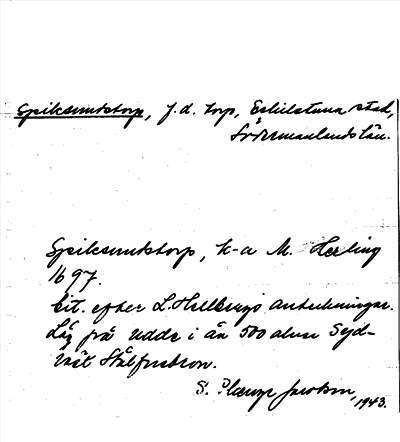 Spiksundstorp, f.d. torp, Eskilstuna stad,
Södermanlands län.
Spiksundstorp, k-a M. Herling
1697.
Cit. efter L. Hellbergs anteckningar.
Låg på udde i ån 500 alnar Syd-
väst Stålforsbron.
S. Plenge Jacobson,
1943.